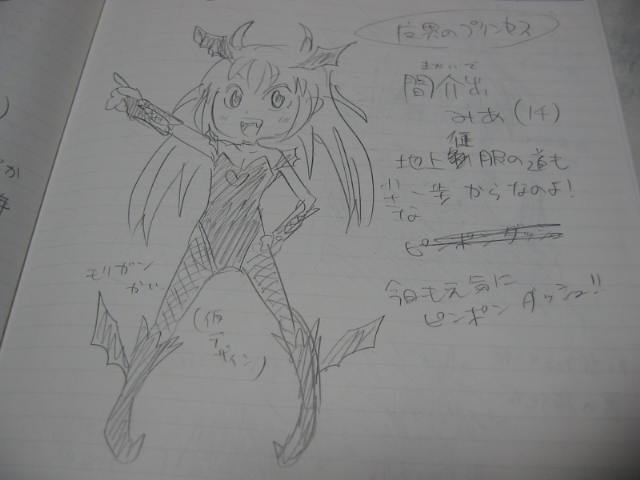 魔界のプリンセス
まかいで
間介出
みあ(14)
征
地上服の道も
小さな一歩からなのよ!
ピンポンダッシュ
今日も元気に
ピンポンダッシュ!!
モリガン
かい
(仮
デザイン)